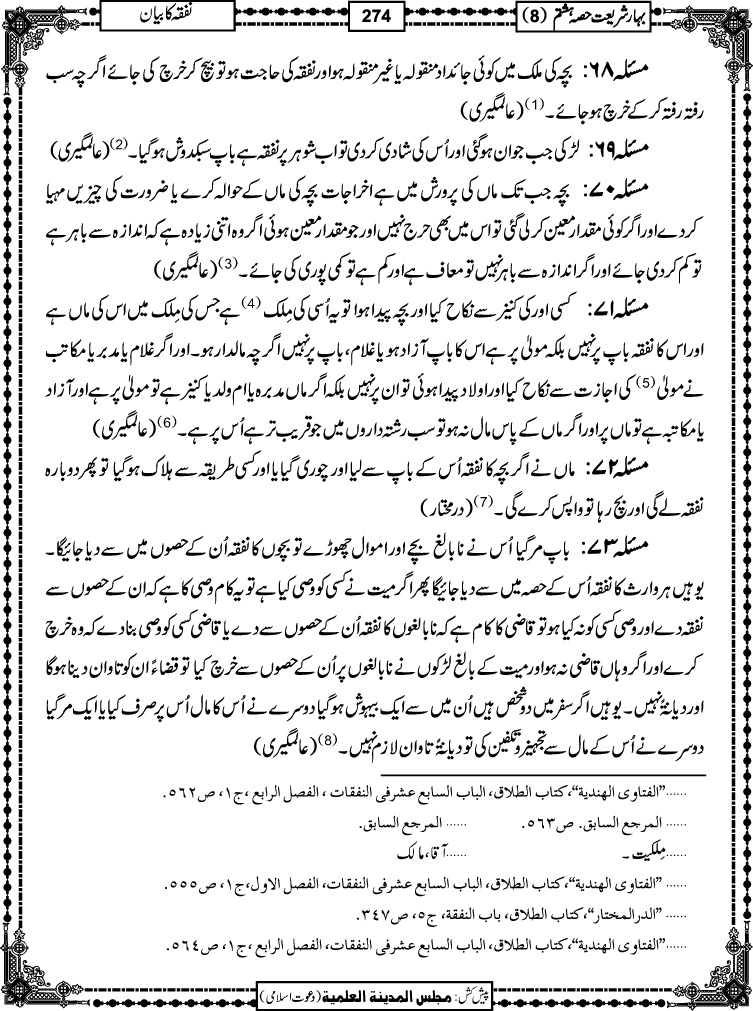 بہارِ شریعت حصہ ہشتم (8)
274
نفقہ کا بیان
مسئلہ ۶۸: بچہ کی ملک میں کوئی جائداد منقولہ یا غیر منقولہ ہو اور نفقہ کی حاجت ہو تو بیچ کر خرچ کی جائے اگرچہ سب
رفتہ رفتہ کرکے خرچ ہو جائے۔(1) (عالمگیری)
مسئلہ ۶۹: لڑکی جب جوان ہوگئی اور اُس کی شادی کردی تو اب شوہر پر نفقہ ہے باپ سبکدوش ہوگیا۔(2) (عالمگیری)
مسئلہ ۷۰: بچہ جب تک ماں کی پرورش میں ہے اخراجات بچہ کی ماں کے حوالہ کرے یا ضرورت کی چیزیں مہیا
کردے اور اگر کوئی مقدار معین کرلی گئی تو اس میں بھی حرج نہیں اور جو مقدار معین ہوئی اگر وہ اتنی زیادہ ہے کہ اندازہ سے باہر ہے
تو کم کردی جائے اور اگر اندازہ سے باہر نہیں تو معاف ہے اور کم ہے تو کمی پوری کی جائے۔(3) (عالمگیری)
مسئلہ ۷۱: کسی اور کی کنیز سے نکاح کیا اور بچہ پیدا ہوا تو یہ اُسی کی مِلک (4) ہے جس کی مِلک میں اس کی ماں ہے
اور اس کا نفقہ باپ پر نہیں بلکہ مولیٰ پر ہے اس کا باپ آزاد ہو یا غلام، باپ پر نہیں اگرچہ مالدار ہو۔ اور اگر غلام یا مدبر یا مکاتب
نے مولیٰ (5) کی اجازت سے نکاح کیا اور اولاد پیدا ہوئی تو ان پر نہیں بلکہ اگر ماں مدبرہ یا ام ولد یا کنیز ہے تو مولیٰ پر ہے اور آزاد
یا مکاتبہ ہے تو ماں پر اور اگر ماں کے پاس مال نہ ہو تو سب رشتہ داروں میں جو قریب تر ہے اُس پر ہے۔(6) (عالمگیری)
مسئلہ ۷۲: ماں نے اگر بچہ کا نفقہ اُس کے باپ سے لیا اور چوری گیا یا اور کسی طریقہ سے ہلاک ہوگیا تو پھر دوبارہ
نفقہ لے گی اور بچ رہا تو واپس کرے گی۔(7) (درمختار)
مسئلہ ۷۳: باپ مرگیا اُس نے نابالغ بچے اور اموال چھوڑے تو بچوں کا نفقہ اُن کے حصوں میں سے دیا جائیگا۔
یوہیں ہر وارث کا نفقہ اُس کے حصہ میں سے دیا جائیگا پھر اگر میت نے کسی کو وصی کیا ہے تو یہ کام وصی کا ہے کہ ان کے حصوں سے
نفقہ دے اور وصی کسی کو نہ کیا ہو تو قاضی کا کام ہے کہ نابالغوں کا نفقہ اُن کے حصوں سے دے یا قاضی کسی کو وصی بنا دے کہ وہ خرچ
کرے اور اگر وہاں قاضی نہ ہو اور میت کے بالغ لڑکوں نے نابالغوں پر اُن کے حصوں سے خرچ کیا تو قضاءً ان کو تاوان دینا ہوگا
اور دیانۃً نہیں۔ یوہیں اگر سفر میں دو شخص ہیں اُن میں سے ایک بیہوش ہوگیا دوسرے نے اُس کا مال اُس پر صرف کیا یا ایک مرگیا
دوسرے نے اُس کے مال سے تجہیز و تکفین کی تو دیانۃً تاوان لازم نہیں۔(8) (عالمگیری)
...... "الفتاوی الھندیة"، کتاب الطلاق، الباب السابع عشرفی النفقات، الفصل الرابع، ج١، ص٥٦٢.
...... المرجع السابق. ص٥٦٣. ...... المرجع السابق.
......مِلکیت۔ ......آقا، مالک
...... "الفتاوی الھندیة"، کتاب الطلاق، الباب السابع عشرفی النفقات، الفصل الاول،ج١، ص٥٥٥.
...... "الدرالمختار"، کتاب الطلاق، باب النفقة، ج٥، ص٣٤٧.
......"الفتاوی الھندیة"، کتاب الطلاق، الباب السابع عشرفی النفقات، الفصل الرابع، ج١، ص٥٦٤.
پیش کش: مجلس المدینة العلمیة (دعوت اسلامی)